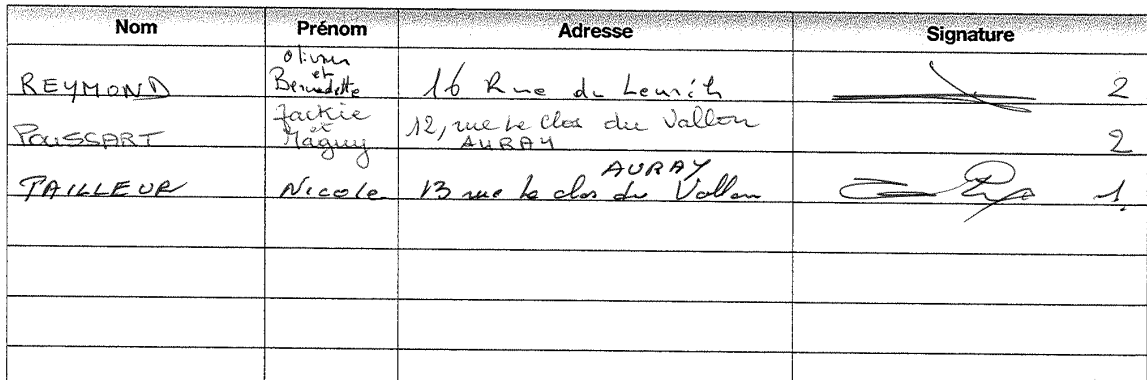 Nom Prénom Adresse Signature
REYMOND Olivier et Bernadette 16 Rue du 2
POUSSART Jackie et Maguy 12, rue Le Clos du Vallon AURAY 2
TAILLEUR Nicole 13 rue Le clos du Vallon AURAY 1.